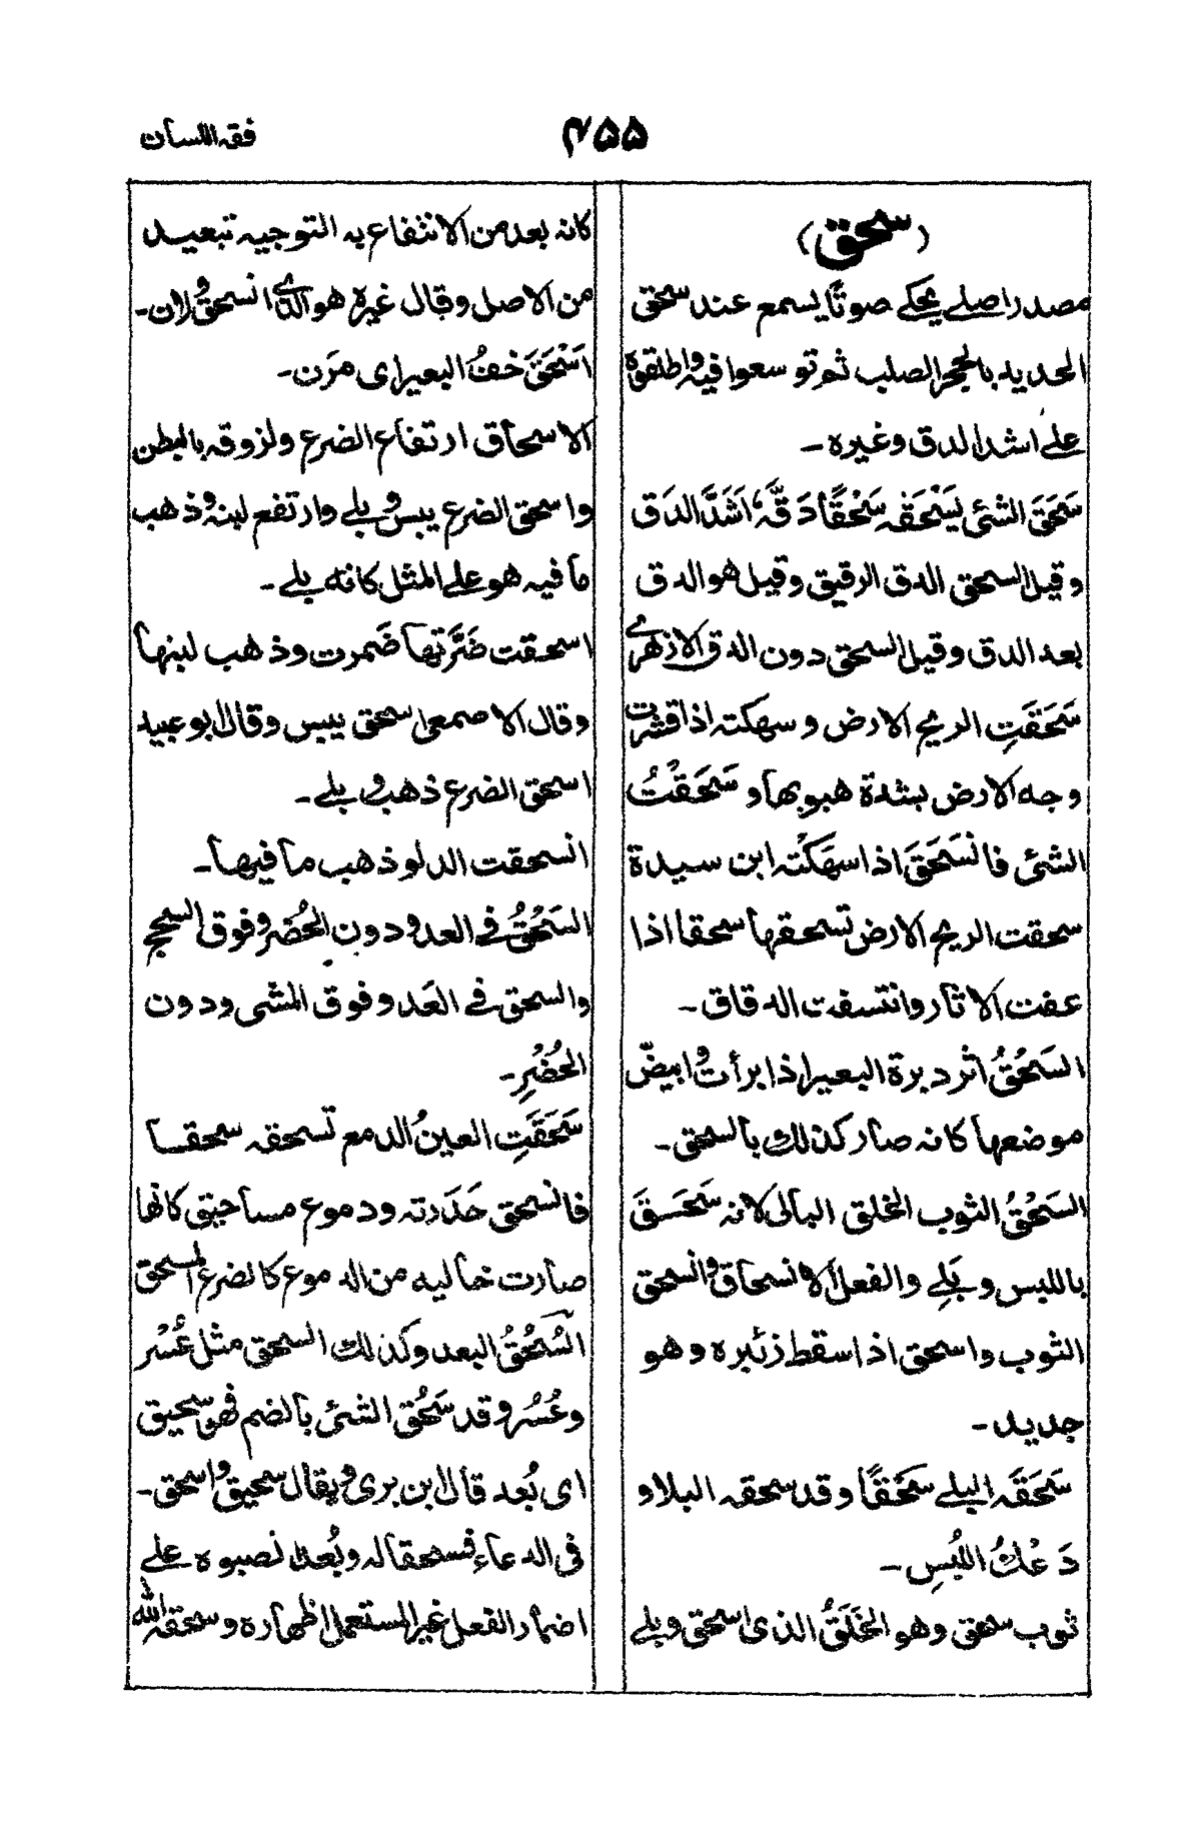 فقہ اللسان
۴۵۵
(سحق)
مصدر اصلے یحکے صوتًا یسمع عند سحق
الحدید بالحجر الصلب ثم توسعوا فیہ واطلقوہ
علے اشد الدق وغیرہ۔
سَحَقَ الشئ یَسْحَقہ سَحْقًا دَقَّہٗ اَشَدَّ الدَق
وقیل السحق الدق الرقیق وقیل ھو الدق
بعد الدق وقیل السحق دون الدق الازھرے
سَحَقَتِ الریح الارض وسھکتہ اذا قشرت
وجہ الارض بشدة ھبوبھا وسَحَقْتُ
الشئ فانسَحَقَ اذا سھَکْتہ ابن سیدة
سحقت الریح الارض تسحقھا سحقا اذا
عفت الاثار وانتسفت الدقاق۔
السَحْقُ اثر دبرة البعیر اذا برأت وابیضّ
موضعھا کانہ صار کذلک بالسحق۔
السَحْقُ الثوب الخلق البالی لانہ سَحَسقَ
باللبس وبَلِے والفعل الانسحاق وانسحق
الثوب واسحق اذا سقط زئبرہ وھو
جدید۔
سَحَقَہ البلے سَحْقًا وقد سحقہ البلا و
دَعْکُ اللُبسِ۔
ثوب سھق وھو الخَلَقُ الذی اسحق وبلے
کانہ بعد من الانتفاع بہ التوجیہ تبعید
من الاصل وقال غیرہ ھو الذے انسحق ولان۔
اَسْحَقَ خفُ البعیر ای مرَن۔
الاسحاق ارتفاع الضرع ولزوقہ بالبطن
واسحق الضرع یبس وبلے وارتفع لبنہ وذھب
ما فیہ ھو علے المثل کانہ بلے۔
اسحقت ضَرَّتھا ضَمرت وذھب لبنھا
وقال الاصمعی اسحق یبس وقال ابو عبید
اسحق الضرع ذھب وبلے۔
انسحقت الدلو ذھب ما فیھا۔
السَحْقُ فے العدو دون الحُضر وفوق السحج
والسحق فے العَدو فوق المشی ودون
الحُضْرِ۔
سَحَقَتِ العینُ الدمع تسحقہ سحقا
فانسحق حَدَرتہ ودموع مساحیق کانھا
صارت خالیہ من الدموع کالضرع المسحق
السُحْقُ البعد وکذلک السحق مثل عُسْر
وعُسُر وقد سَحُق الشئ بالضم فھو سحیق
ای بُعد قال ابن بری ویقال سحیق واسحق۔
فی الدعاءِ فسحقا لہ وبُعدا نصبوہ علے
اضمار الفعل غیر المستعمل اظھارہ وسحقہ اللہ